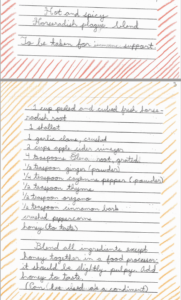 Hot and spicy
Horseradish plague blend
To be taken for immune support.
1 cup peeled and cubed fresh horse-
radish root
1 shallot
1 garlic clove, crushed
2 cups apple cider vinegar
4 teaspoons
root, grated
teaspoon ginger (powder)
teaspoon cayenne pepper (powder)
teaspoon thyme
teaspoon oregano
teaspoon cinnamon bark
crushed peppercorns
honey (to taste)
Blend all ingredients except
honey together in a food processor.
it should be slightly pulpy. Add
honey to taste.
(Can be used as a condiment)